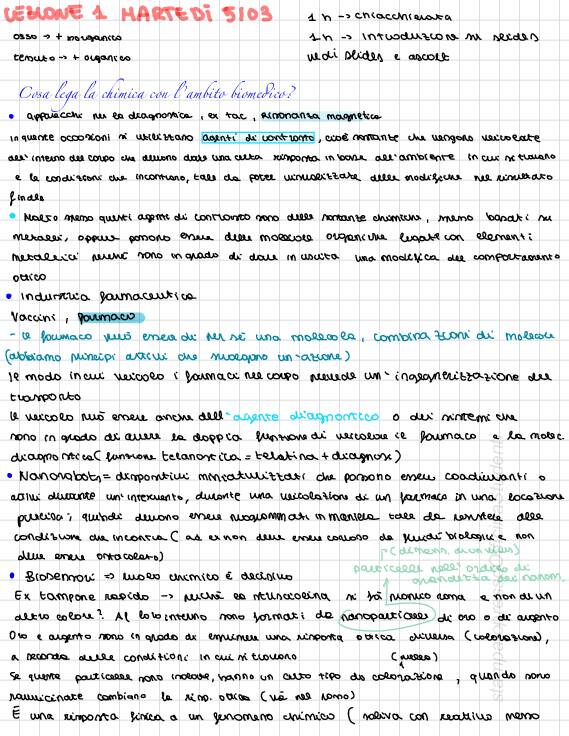 LEZIONE 1 MARTEDì 5/03
1 h -> chiacchierata
osso -> + inorganico
1 h -> introduzione su slides
tessuto -> + organico
vedi slides e ascolt
Cosa lega la chimica con l'ambito biomedico?
• apparecchi per la diagnostica, es tac, risonanza magnetica
in queste occasioni si utilizzano agenti di contrasto, cioè sostanze che vengono veicolate
all'interno del corpo che devono dare una certa risposta in base all'ambiente in cui si trovano
e le condizioni che incontrano, tale da poter visualizzare delle modifiche nel risultato
finale
• Molto spesso questi agenti di contrasto sono delle sostanze chimiche, spesso basati su
metalli, oppure possono essere delle molecole organiche legate con elementi
metallici perché sono in grado di dare in uscita una modifica del comportamento
ottico
• Industria farmaceutica
Vaccini, farmaco
- il farmaco può essere di per sé una molecola, combinazioni di molecole
(abbiamo principi attivi che svolgono un'azione)
Il modo in cui veicolo i farmaci nel corpo prevede un'ingegnerizzazione del
trasporto
Il veicolo può essere anche dell'agente diagnostico o dei sistemi che
sono in grado di avere la doppia funzione di veicolare il farmaco e la molec.
diagnostica (funzione telanostica = telatina + diagnosi)
• Nanorobots = dispositivi miniaturizzati che possono essere coadiuvanti o
attivi durante un'intervento, durante una veicolazione di un farmaco in una locazione
precisa; quindi devono essere programmati in maniera tale da resistere alle
condizioni che incontra (ad es non deve essere corroso da fluidi biologici e non
deve essere ostacolato)
(dimens. di un virus)
particelle nell'ordine di
grandezza dei nanom.
• Biosensori => ruolo chimico è decisivo
Ex tampone rapido -> perché la strisciolina si fa proprio rossa e non di un
altro colore? Al loro interno sono formati da nanoparticelle di oro o di argento
Oro e argento sono in grado di esprimere una risposta ottica diversa (colorazione),
a seconda delle condizioni in cui si trovano
Se queste particelle sono isolate, hanno un certo tipo di colorazione, quando sono
ravvicinate cambiano la risp. ottica (va nel rosso)
È una risposta fisica a un fenomeno chimico (saliva con reattivo messo